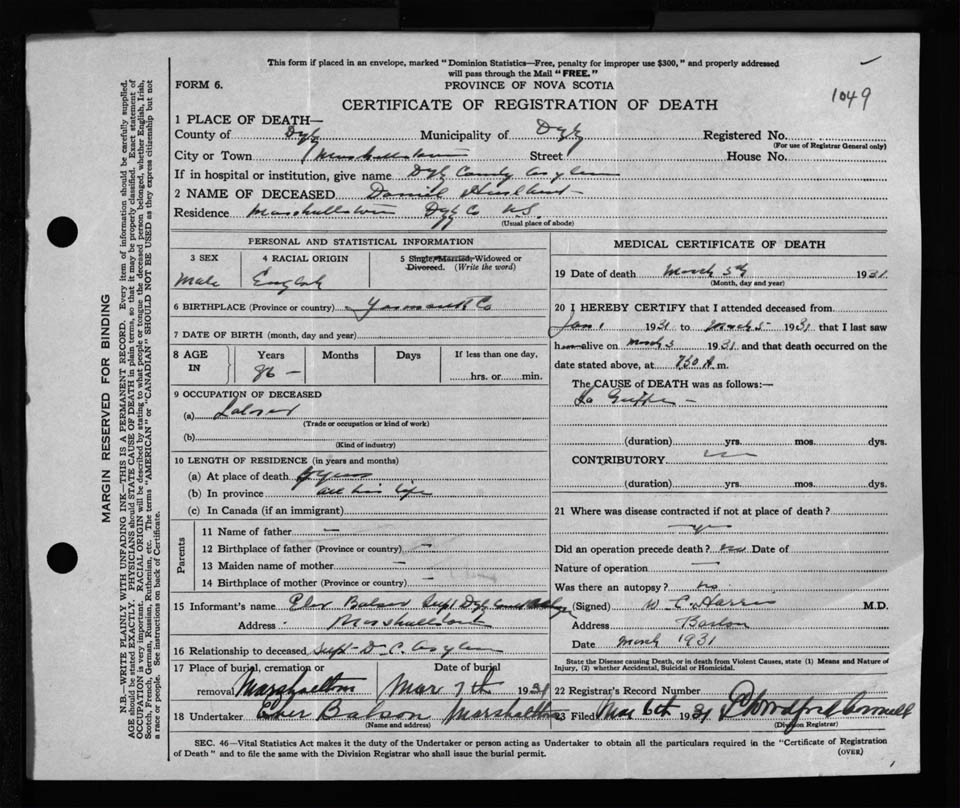 This form if placed in an envelope, marked "Dominion Statistics—Free, penalty for improper use $300," and properly addressed
will pass through the Mail "FREE."
FORM 6.
PROVINCE OF NOVA SCOTIA
1049
CERTIFICATE OF REGISTRATION OF DEATH
1 PLACE OF DEATH—
County of Digby Municipality of Digby Registered No.
(For use of Registrar General only)
City or Town Marshalltown Street House No.
If in hospital or institution, give name Digby County Asylum
2 NAME OF DECEASED Daniel
Residence Marshalltown Digby Co N.S.
(Usual place of abode)
PERSONAL AND STATISTICAL INFORMATION
3 SEX 4 RACIAL ORIGIN 5 Single, Married, Widowed or Divorced. (Write the word)
Male English
6 BIRTHPLACE (Province or country) Yarmouth Co
7 DATE OF BIRTH (month, day and year)
8 AGE IN Years Months Days If less than one day,
86 — hrs. or min.
9 OCCUPATION OF DECEASED
(a) Laborer
(Trade or occupation or kind of work)
(b)
(Kind of industry)
10 LENGTH OF RESIDENCE (in years and months)
(a) At place of death years
(b) In province all his life
(c) In Canada (if an immigrant)
Parents
11 Name of father —
12 Birthplace of father (Province or country) —
13 Maiden name of mother —
14 Birthplace of mother (Province or country) —
15 Informant's name Balser Supt Digby County Asylum
Address Marshalltown
16 Relationship to deceased Supt D. C. Asylum
17 Place of burial, cremation or removal Marshalltown
Date of burial Mar 7th 1931
18 Undertaker Balser Marshalltown
(Name and address)
MEDICAL CERTIFICATE OF DEATH
19 Date of death March 5th 1931
(Month, day and year)
20 I HEREBY CERTIFY that I attended deceased from
Jan 1 1931 to March 5 1931 that I last saw
him alive on March 5 1931 and that death occurred on the
date stated above, at 7.30 A. m.
The CAUSE of DEATH was as follows:—
La Grippe —
(duration) yrs. mos. dys.
CONTRIBUTORY
(duration) yrs. mos. dys.
21 Where was disease contracted if not at place of death?
Did an operation precede death? no Date of
Nature of operation —
Was there an autopsy? no
(Signed) W C Harris M.D.
Address Barton
Date March 1931
State the Disease causing Death, or in death from Violent Causes, state (1) Means and Nature of
Injury, (2) whether Accidental, Suicidal or Homicidal.
22 Registrar's Record Number
23 Filed Mar 6th 1931
(Division Registrar)
SEC. 46—Vital Statistics Act makes it the duty of the Undertaker or person acting as Undertaker to obtain all the particulars required in the "Certificate of Registration
of Death" and to file the same with the Division Registrar who shall issue the burial permit.
(OVER)
MARGIN RESERVED FOR BINDING
N.B.—WRITE PLAINLY WITH UNFADING INK—THIS IS A PERMANENT RECORD. Every item of information should be carefully supplied.
AGE should be stated EXACTLY. PHYSICIANS should STATE CAUSE OF DEATH in plain terms, so that it may be properly classified. Exact statement of
OCCUPATION is very important. RACIAL ORIGIN will be described by stating to what people or tongue the deceased person belonged, whether English, Irish,
Scotch, French, German, Russian, Ruthenian, etc. The terms "AMERICAN" or "CANADIAN" SHOULD NOT BE USED as they express citizenship but not
a race or people. See instructions on back of Certificate.